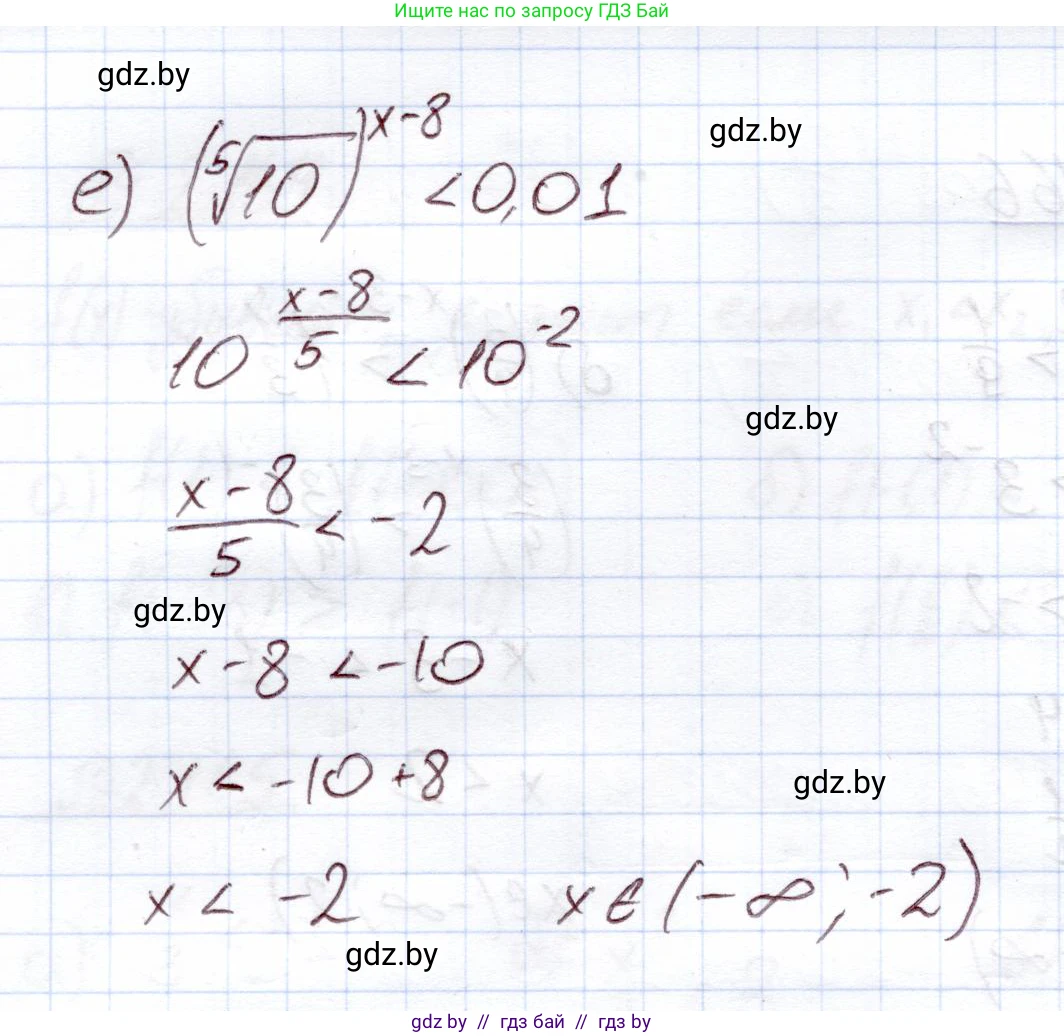 Ищите нас по запросу ГДЗ Бай
gdz.by
gdz.by
е) (⁵√10)^(x-8) < 0,01
10^((x-8)/5) < 10^(-2)
gdz.by
(x-8)/5 < -2
gdz.by
x-8 < -10
x < -10+8
gdz.by
x < -2   x ∈ (-∞; -2)
gdz.by
gdz by // гдз бай // гдз by